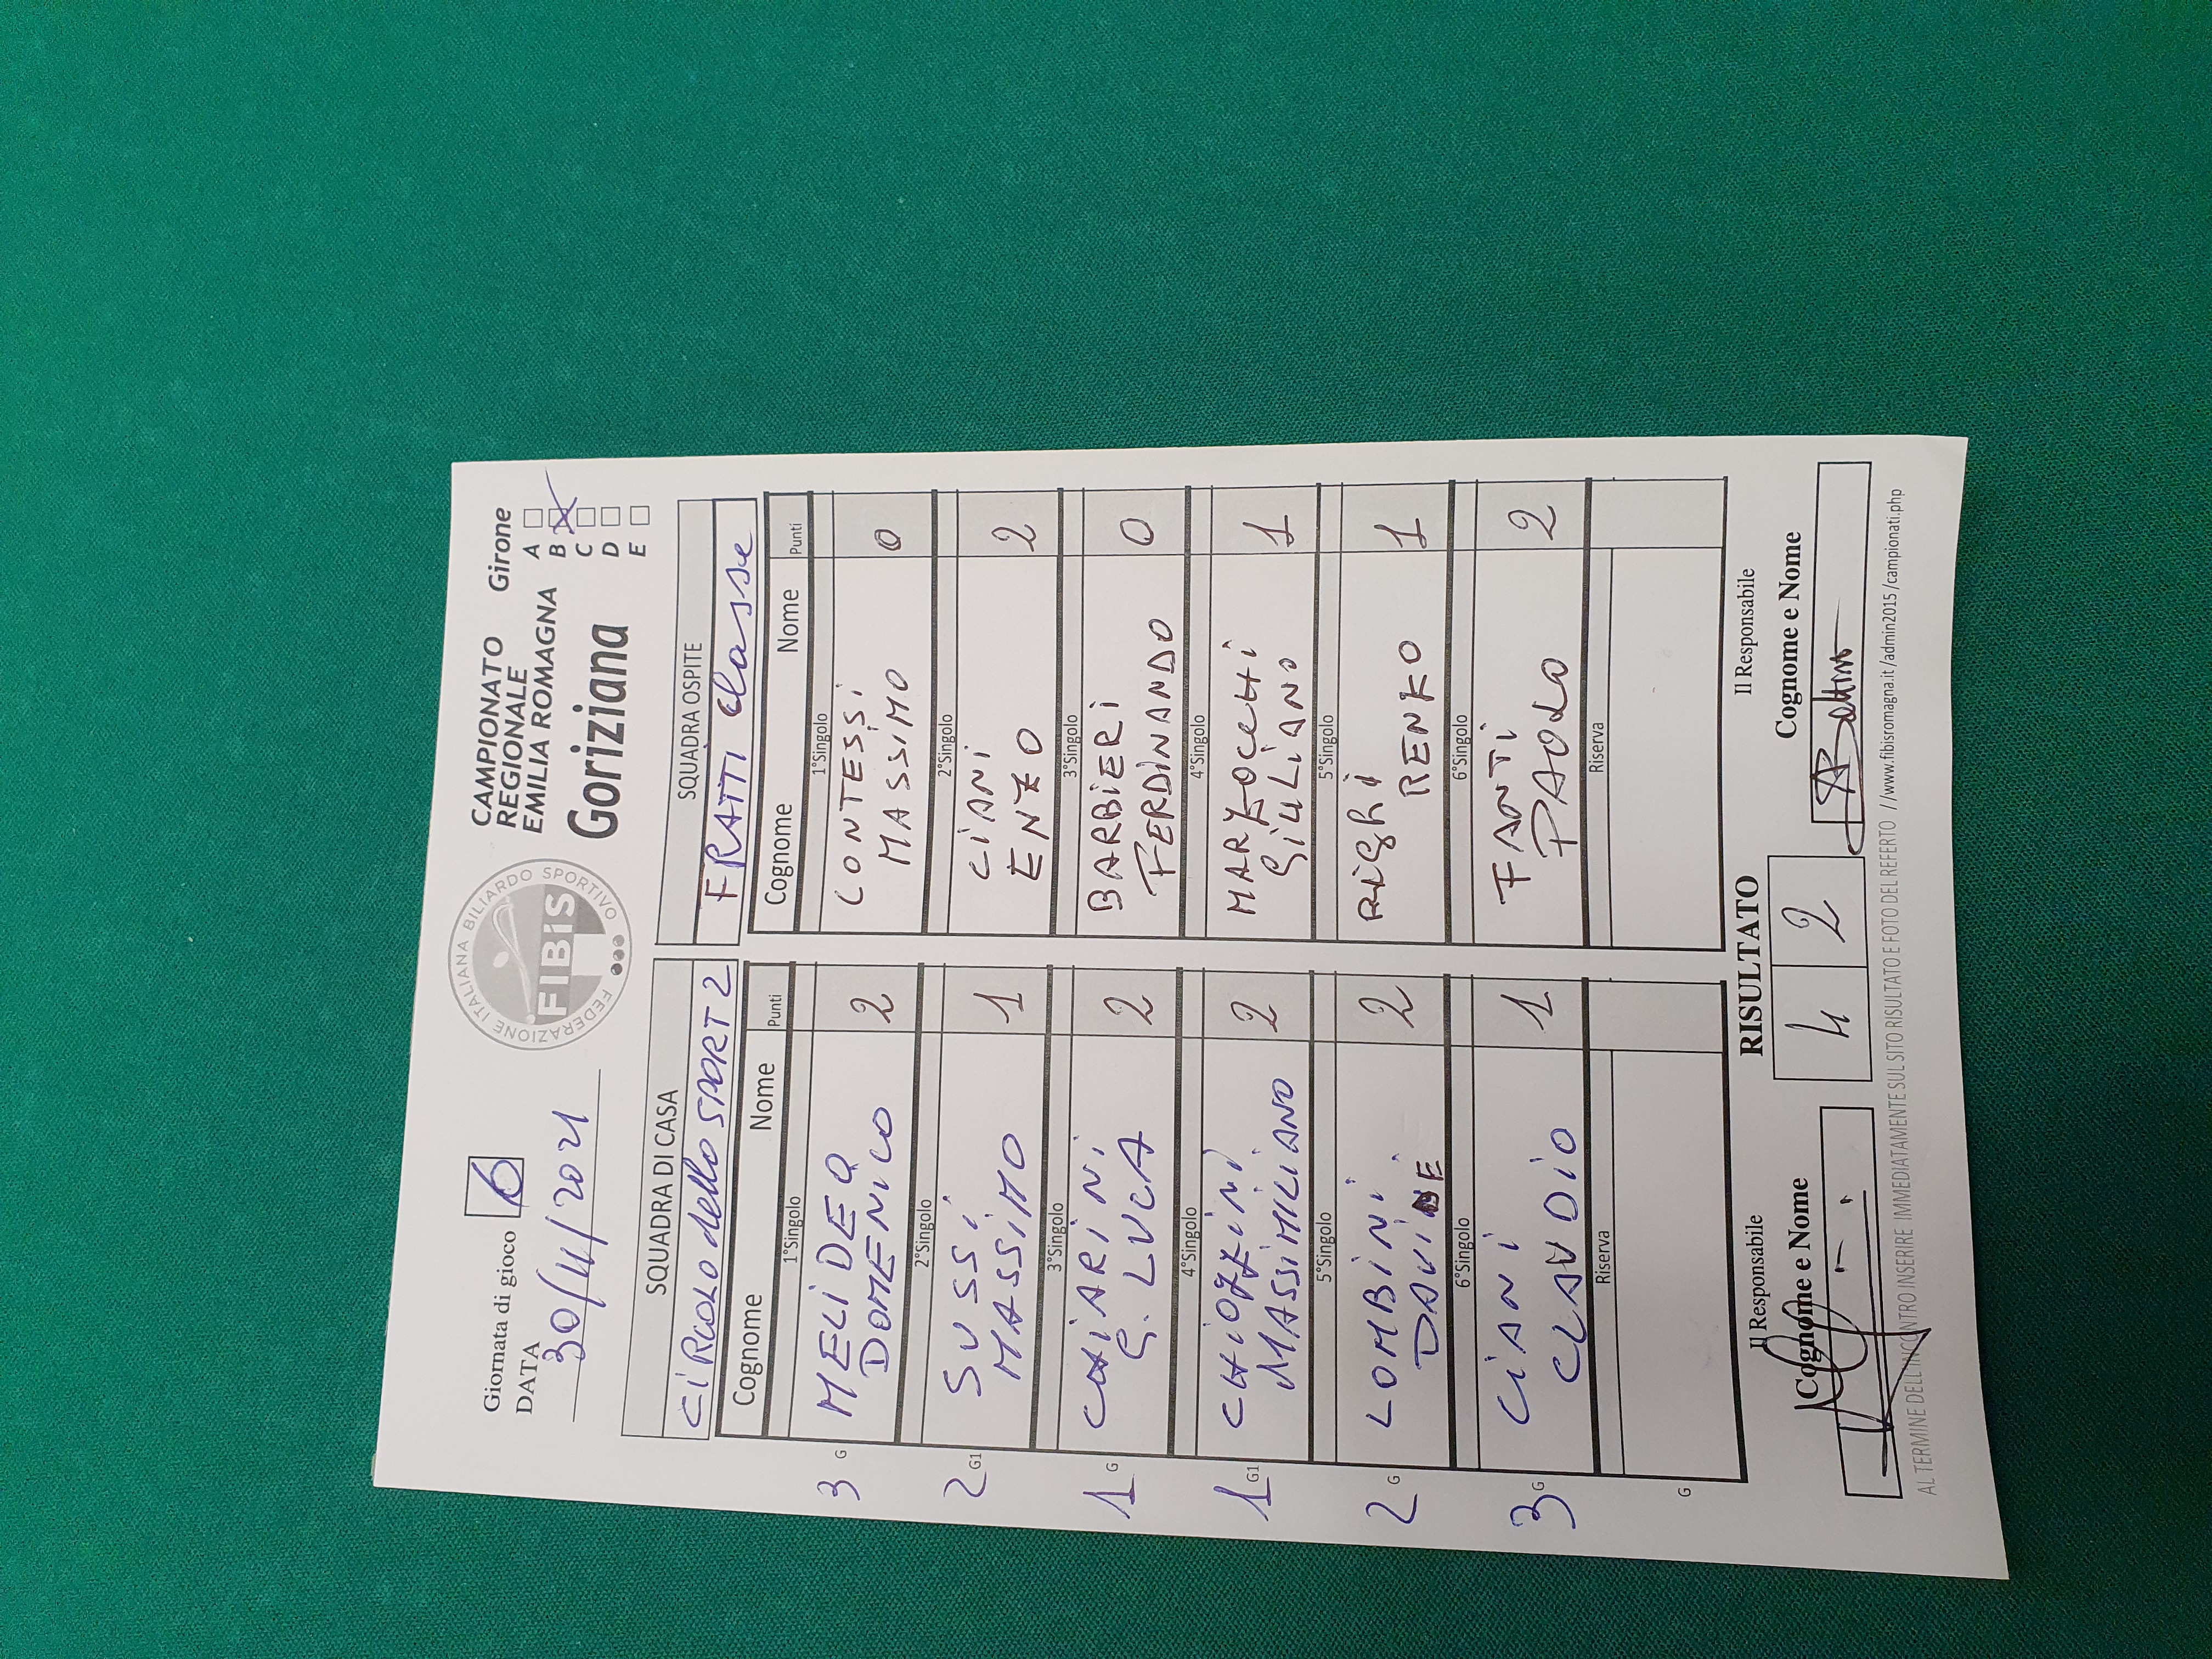 Giornata di gioco 6
DATA
30/11/2021
FEDERAZIONE ITALIANA BILIARDO SPORTIVO
FIBiS
CAMPIONATO
REGIONALE
EMILIA ROMAGNA
Goriziana
Girone
A
B
C
D
E
SQUADRA DI CASA
CiRCOLO dello SPORT 2
Cognome Nome Punti
1°Singolo
3 G MELIDEO 2
DOMENICO
2°Singolo
2 G1 SUSSi 1
MASSiMO
3°Singolo
1 G CHiARiNi 2
G. LUCA
4°Singolo
1 G1 CHiOZZiNi 2
MASSiMILiANO
5°Singolo
2 G LOMBiNi 2
6°Singolo
3 G CiANi 1
CLAUDiO
Riserva
G
SQUADRA OSPITE
FRATTI Classe
Cognome Nome Punti
1°Singolo
CONTESSi 0
MASSiMO
2°Singolo
CiANi 2
ENZO
3°Singolo
BARBiERi 0
FERDiNANDO
4°Singolo
MARZOCCHi 1
GiULiANO
5°Singolo
RiGhi 1
RENZO
6°Singolo
FANTi 2
PAOLO
Riserva
Il Responsabile
Cognome e Nome
RISULTATO
4 2
Il Responsabile
Cognome e Nome
AL TERMINE DELL'INCONTRO INSERIRE IMMEDIATAMENTE SUL SITO RISULTATO E FOTO DEL REFERTO //www.fibisromagna.it/admin2015/campionati.php